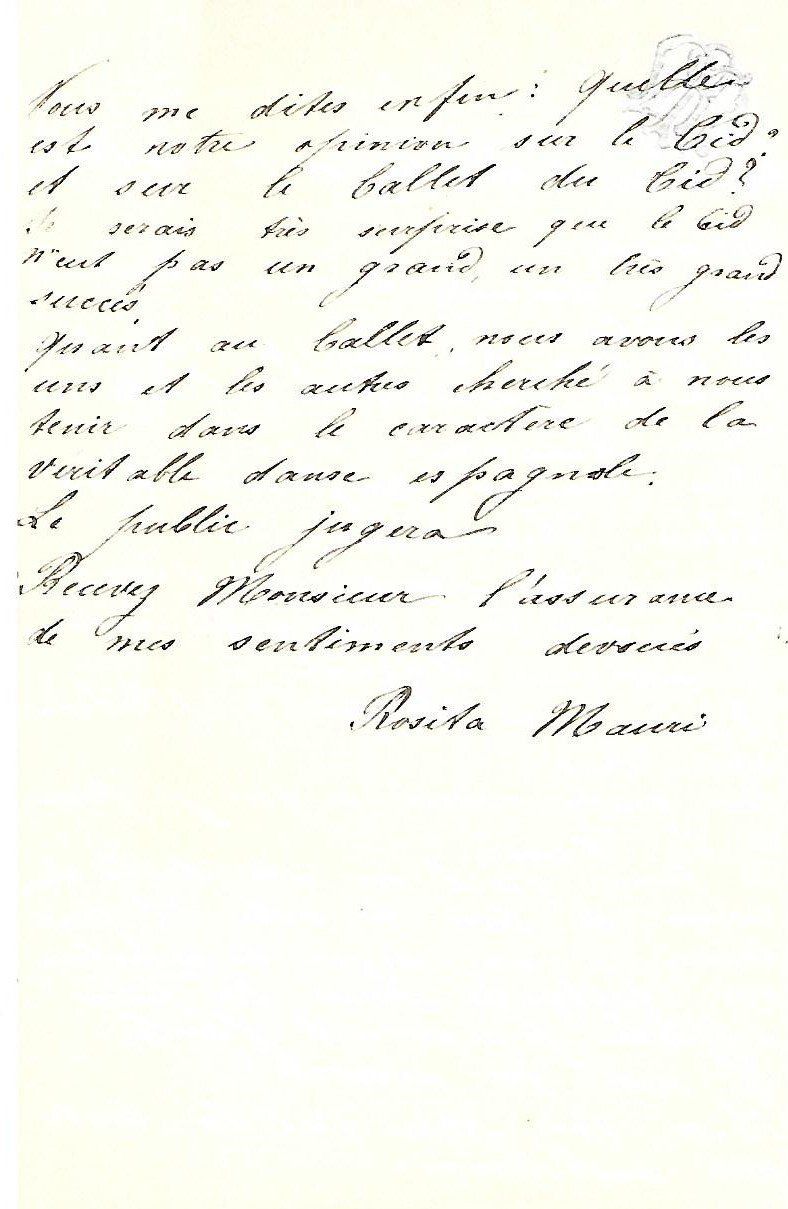 Vous me dites enfin : Quelle
est notre opinion sur le Cid?
et sur le Ballet du Cid?
Je serais très surprise que le Cid
n'eut pas un grand, un très grand
succès.
Quant au Ballet, nous avons les
uns et les autres cherché à nous
tenir dans le caractère de la
véritable danse espagnole.
Le public jugera
Recevez Monsieur l'assurance
de mes sentiments devoués
Rosita Mauri